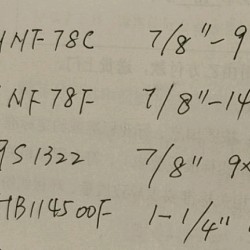 YNF78C 7/8"-9
YNF78F 7/8"-14
9S1322 7/8" 9x
HB114500F 1-1/4"